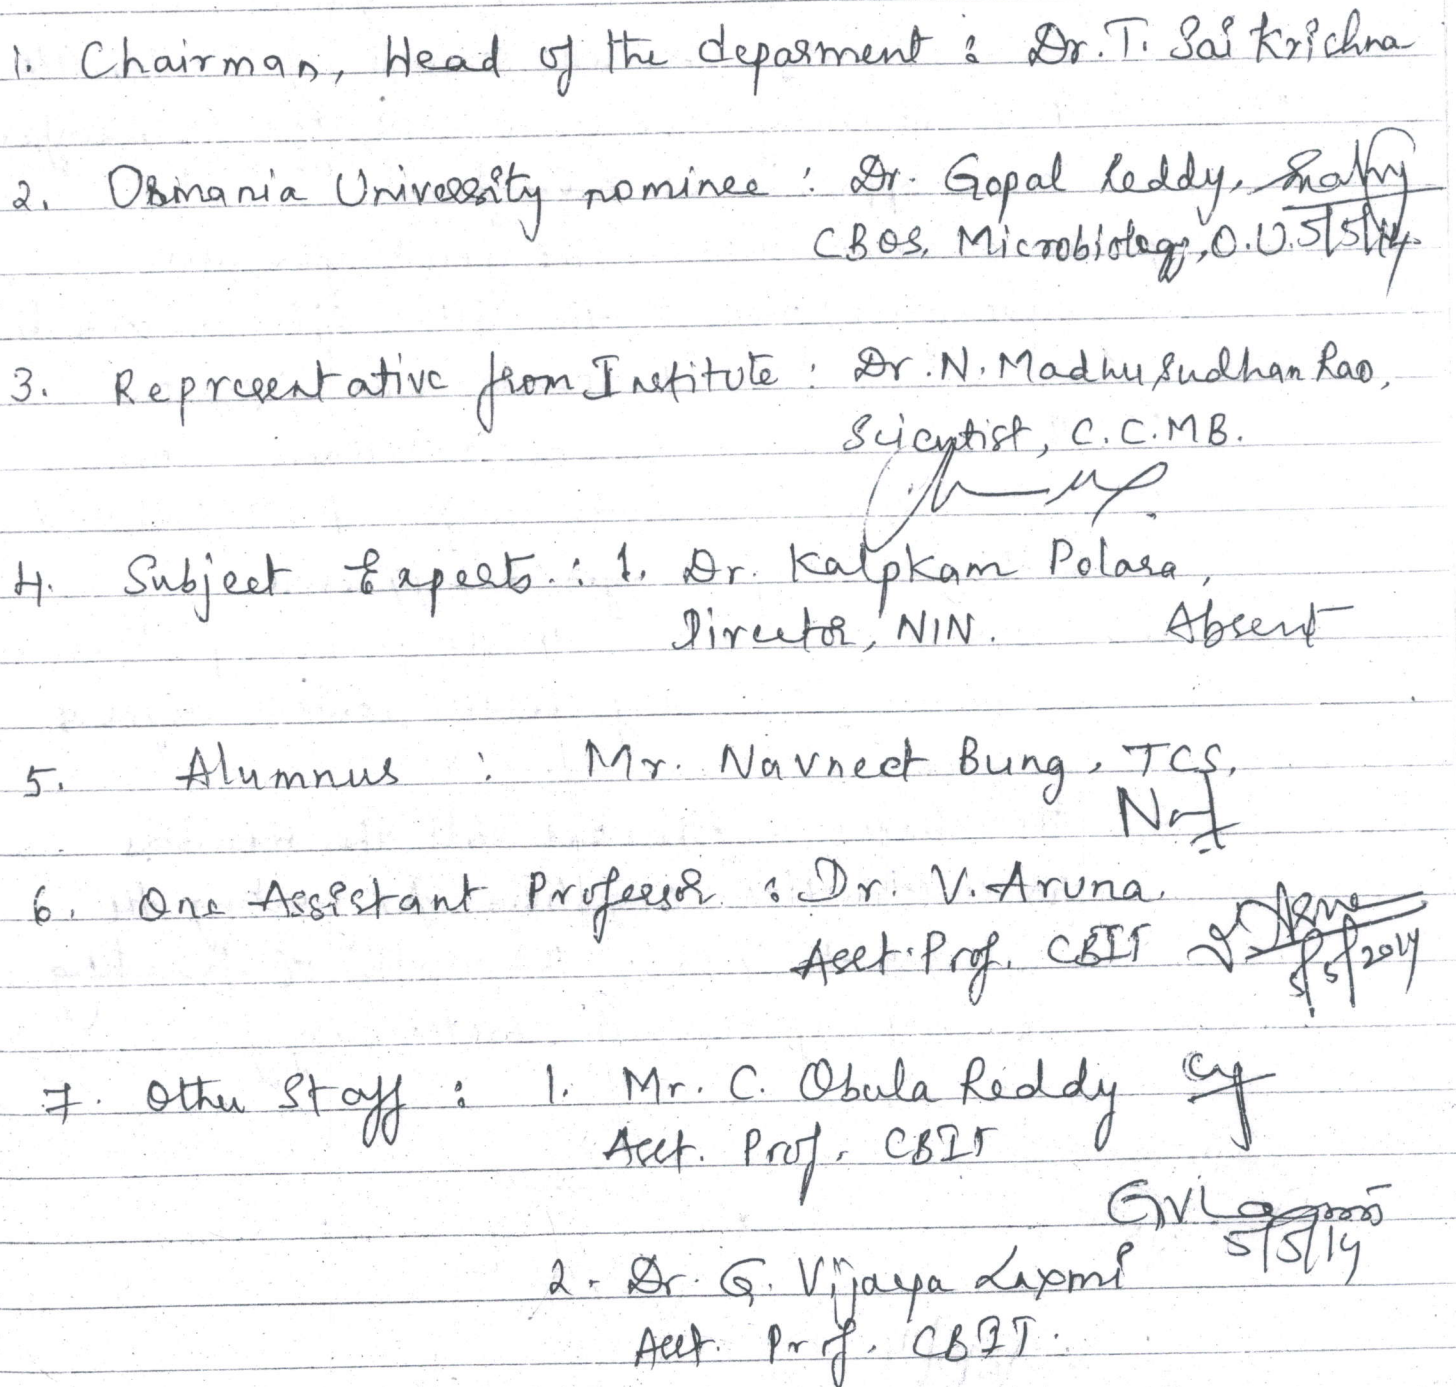 1. Chairman, Head of the deparment : Dr. T. Sai Krichna
2. Osmania University nominee : Dr. Gopal Reddy,
CBOS, Microbiology, O.U. 5/5/14.
3. Representative from Institute : Dr. N. Madhu Sudhan Rao,
Scientist, C.C.MB.
4. Subject Experts. : 1. Dr. Kalpkam Polasa,
Director, NIN. Absent
5. Alumnus : Mr. Navneet Bung, TCS,
6. One Assistant Professor : Dr. V. Aruna
Asst. Prof. CBIT 5/5/2014
7. Other Staff : 1. Mr. C. Obula Reddy
Asst. Prof. CBIT
5/5/14
2. Dr. G. Vijaya Laxmi
Asst. Prof. CBIT.